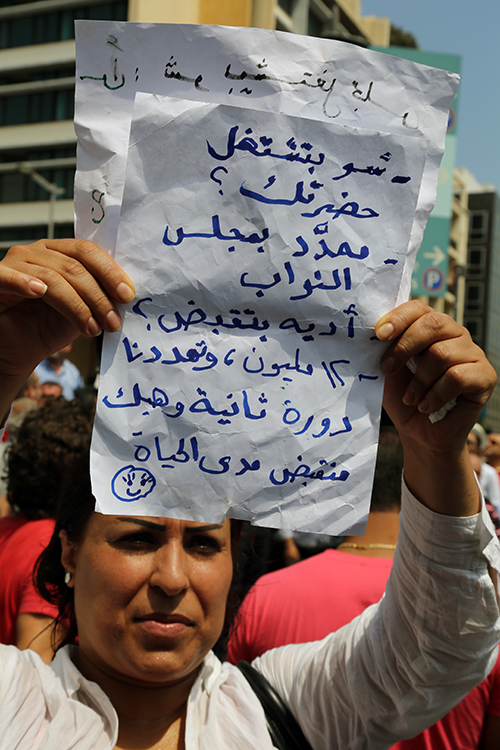 - شو بتشتغل
حضرتك ؟
- ممدَّد بمجلس
النواب
- أديه بتقبض ؟
- ١٢ مليون ، وتمددنا
دورة ثانية وهيك
منقبض مدى الحياة
P